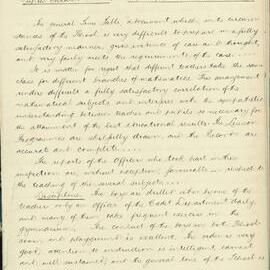 The general Time Table, a document which, in the circum-
stances of the School, is very difficult to prepare in a fully
satisfactory manner, gives evidence of care and thought,
and very fairly meets the requirements of the case.
It is matter for regret that different teachers take the same
class for different branches of mathematics. This arrangement
renders difficult a fully satisfactory correlation of the
mathematical subjects and interferes with the sympathetic
understanding between teacher and pupils so necessary for
the attainment of the best educational results. The
Programmes are skilfully drawn, and the Records are
accurate and complete....
The reports of the Officers who took part in this
inspection are, without exception, favourable in respect to
the teaching of the several subjects...
Discipline. The boys are drilled after some of the
teachers or by an Officer of the Cadet Department daily,
and many of them take frequent exercise in the
gymnasium. The conduct of the boys in School-
room, and playground is excellent. The order is very
good, attention to instruction is intelligent, earnest
and well sustained, and the general tone of the School is